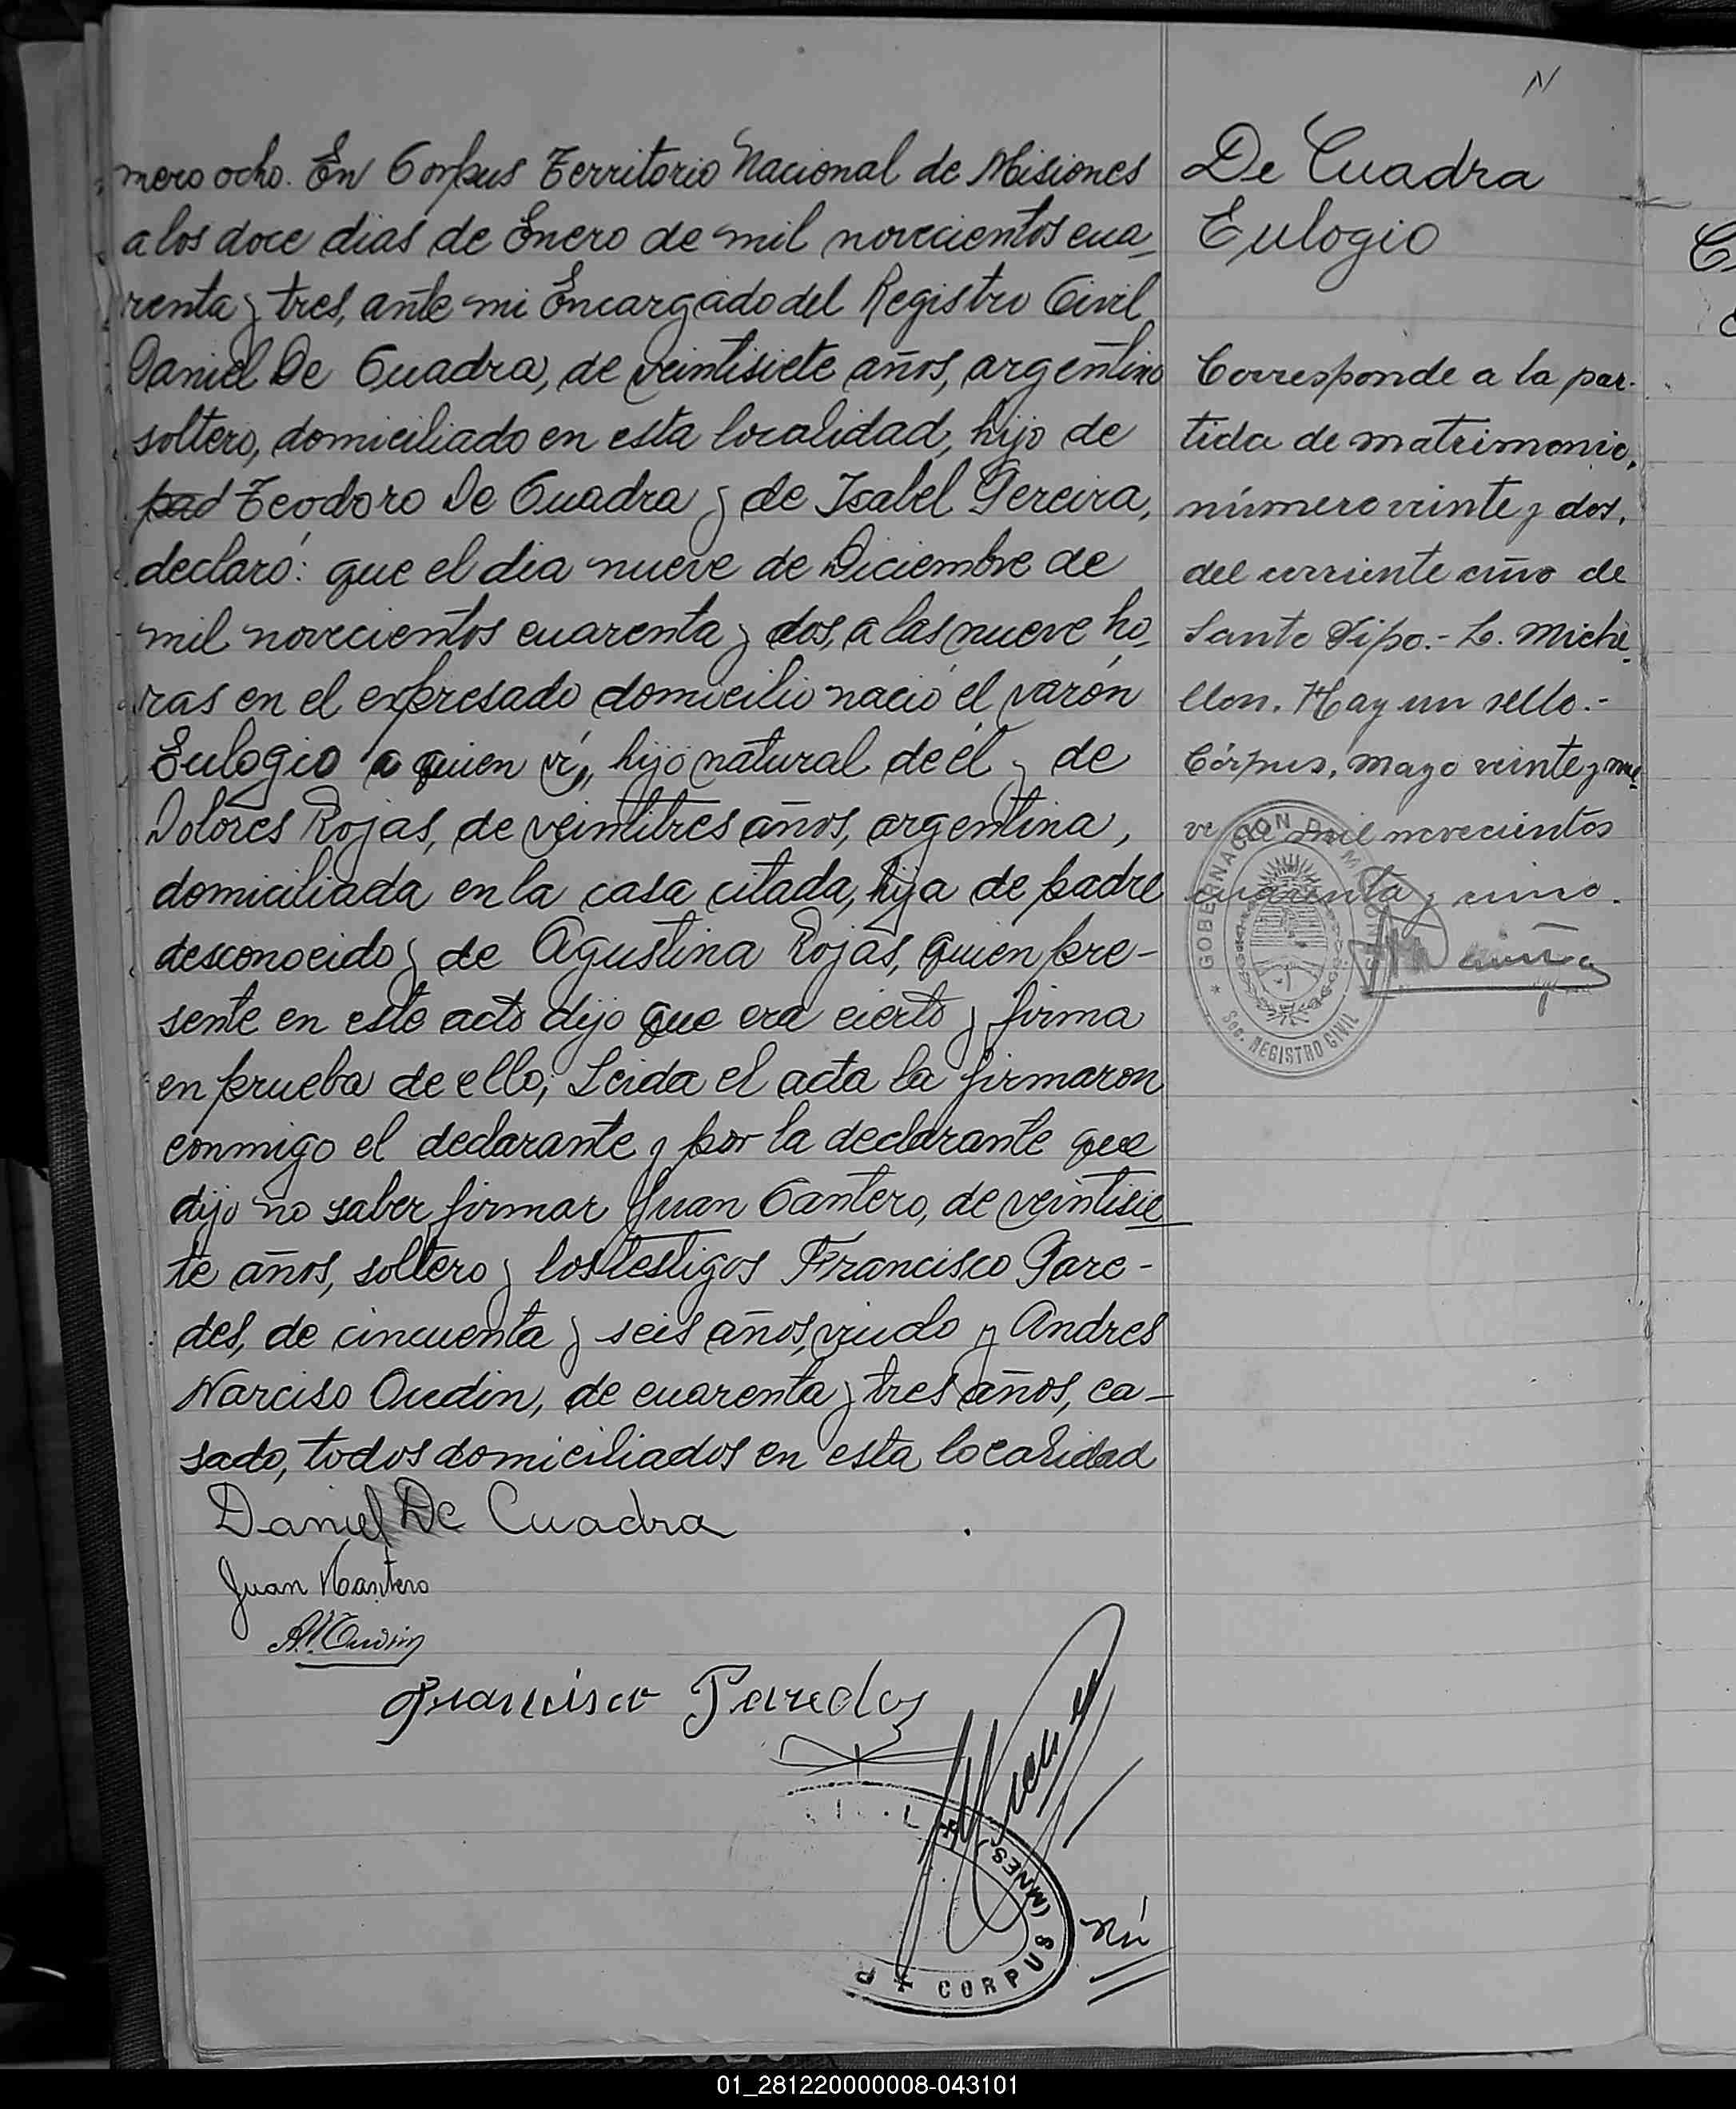 N
mero ocho. En Corpus Territorio Nacional de Misiones
a los doce dias de Enero de mil novecientos cua
renta y tres, ante mi Encargado del Registro Civil
Daniel De Cuadra, de veintisiete años, argentino
soltero, domiciliado en esta localidad, hijo de
pad Teodoro De Cuadra y de Isabel Pereira,
declaró: que el dia nueve de Diciembre de
mil novecientos cuarenta y dos, a las nueve ho
ras en el expresado domicilio nació el varón
Eulogio a quien ví, hijo natural de él y de
Dolores Rojas, de veintitres años, argentina,
domiciliada en la casa citada, hija de padre
desconocido y de Agustina Rojas, quien pre-
sente en este acto dijo que era cierto y firma
en prueba de ello; Leida el acta la firmaron
conmigo el declarante y por la declarante que
dijo no saber firmar Juan Cantero, de veintisie
te años, soltero y los testigos Francisco Pare-
des, de cincuenta y seis años, viudo y Andres
Narciso Oudin, de cuarenta y tres años, ca-
sado, todos domiciliados en esta localidad
Daniel De Cuadra
Juan Cantero
A. N. Oudin
Francisco Paredes
CORPUS (MNES.)
Nú
De Cuadra
Eulogio
Corresponde a la par-
tida de matrimonio,
número veinte y dos,
del corriente año de
Santo Pipo.- L. Miche
llon. Hay un sello.-
Córpus, mayo veinte y nue
ve de mil novecientos
cuarenta y cinco.
GOBERNACION DE MISIONES
SEC. REGISTRO CIVIL
01_281220000008-043101